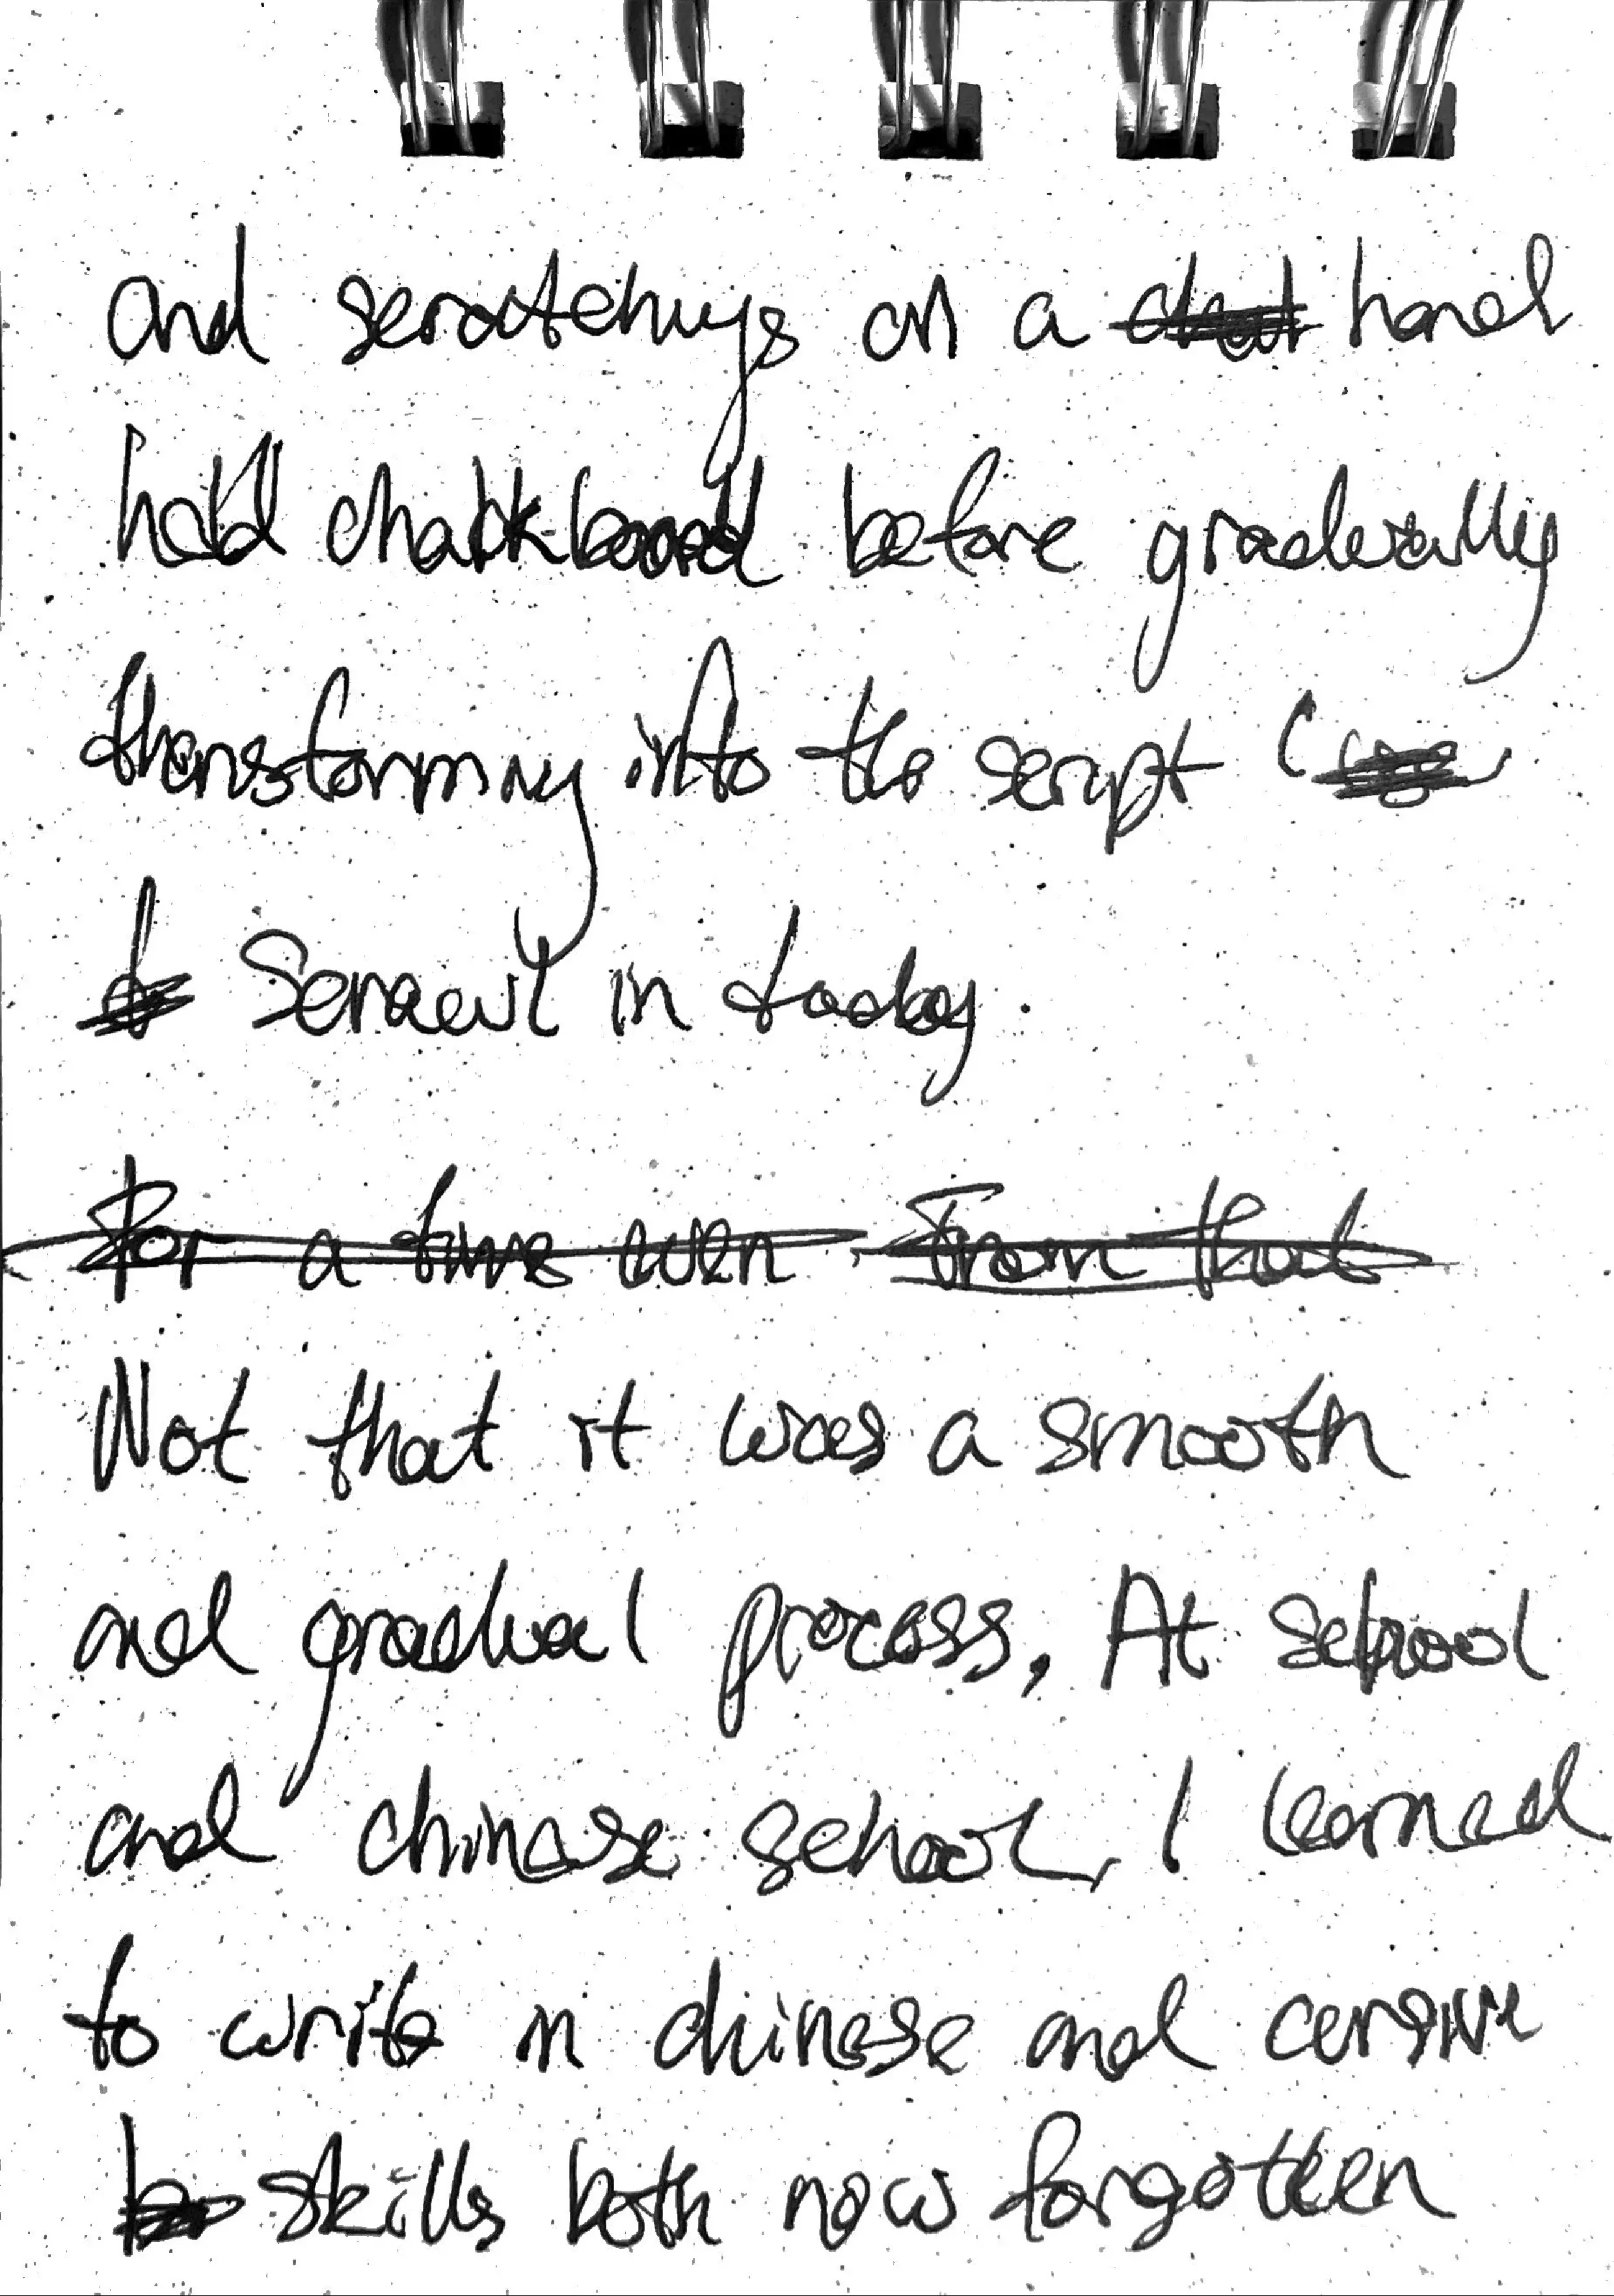 and scratchings on a hand
held chalkboard before gradually
transforming into the script I
Scrawl in today.
For a time even From that
Not that it was a smooth
and gradual process. At school
and chinese school, I learned
to write in chinese and cursive
skills both now forgotten